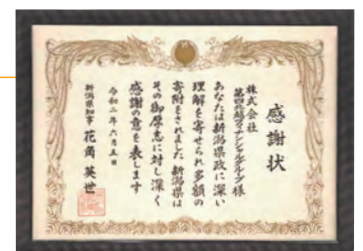 感謝状
株式会社
第四北越フィナンシャルグループ様
あなたは新潟県政に深い
理解を寄せられ多額の
寄附をされました新潟県は
その御厚志に対し深く
感謝の意を表します
令和二年六月五日
新潟県知事 花角英世